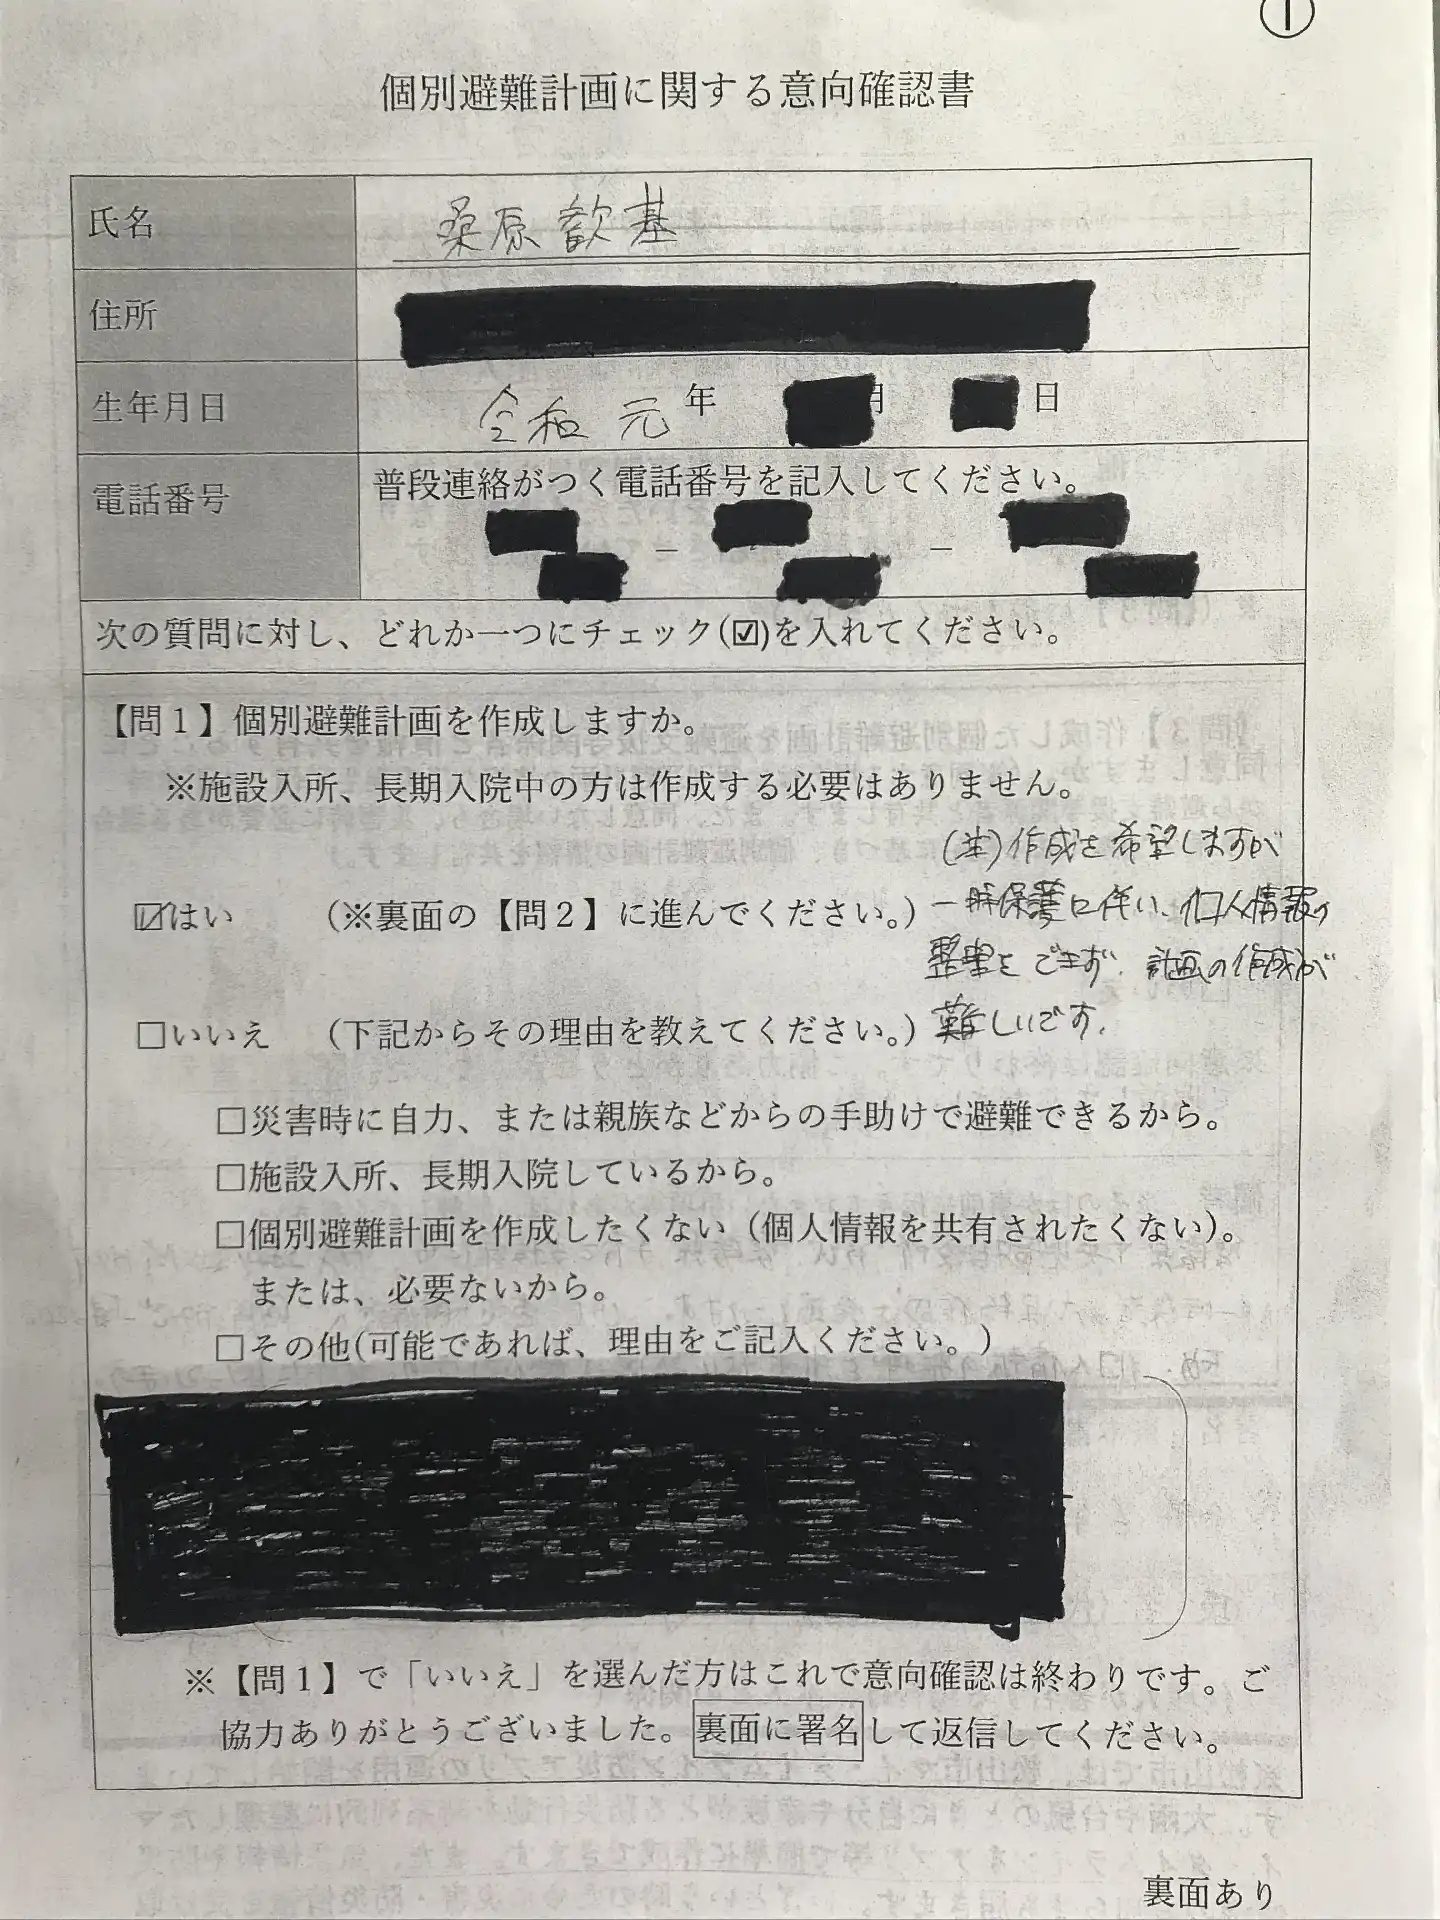 ①
個別避難計画に関する意向確認書
氏名
桑原 歓基
住所
生年月日
令和 元 年 月 日
電話番号
普段連絡がつく電話番号を記入してください。
－ －
次の質問に対し、どれか一つにチェック(☑)を入れてください。
【問1】個別避難計画を作成しますか。
※施設入所、長期入院中の方は作成する必要はありません。
(注)作成を希望しますが
一時保護に伴い、個人情報の
整理をできず、計画の作成が
難しいです。
☑はい (※裏面の【問2】に進んでください。)
□いいえ (下記からその理由を教えてください。)
□災害時に自力、または親族などからの手助けで避難できるから。
□施設入所、長期入院しているから。
□個別避難計画を作成したくない（個人情報を共有されたくない）。
または、必要ないから。
□その他(可能であれば、理由をご記入ください。)
※【問1】で「いいえ」を選んだ方はこれで意向確認は終わりです。ご
協力ありがとうございました。裏面に署名して返信してください。
裏面あり